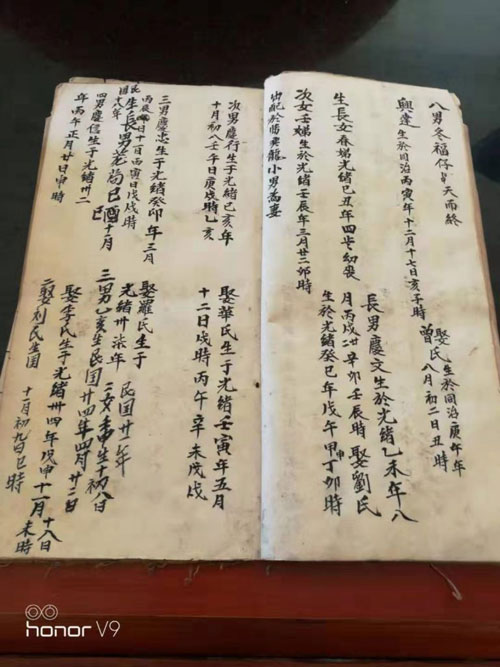 八男冬福仔少天而終
興達生於同治丙寅年十二月十七日亥子時
娶曾氏生於同治庚午年八月初二日丑時
生長女春娣光緒己丑年四步幼喪
次女壬娣生於光緒壬辰年三月廿二卯時
出配於勝龍小男為妻
長男慶文生於光緒乙未年八月丙戌廿辛卯壬辰時娶劉氏
生於光緒癸巳年戊午甲申丁卯時
次男慶衍生于光緒己亥年十月初八壬午日庚戌時乙亥
娶華氏生于光緒壬寅年五月十二日戌時丙午辛未戊戌
三男慶忠生于光緒癸卯年三月丙辰十日丙寅日戊戌時
民国十八年生長男己巳十月
娶羅氏生于光緒卅柒年
民国廿一年次女壬申生十初八日
三男乙亥生民国廿四年四月廿二日
四男慶信生于光緒卅二年丙午正月廿日申時
娶李氏生于光緒卅四年戊申十一月十八日未時
二娶刘氏生国十一月初九日巳時
honor V9